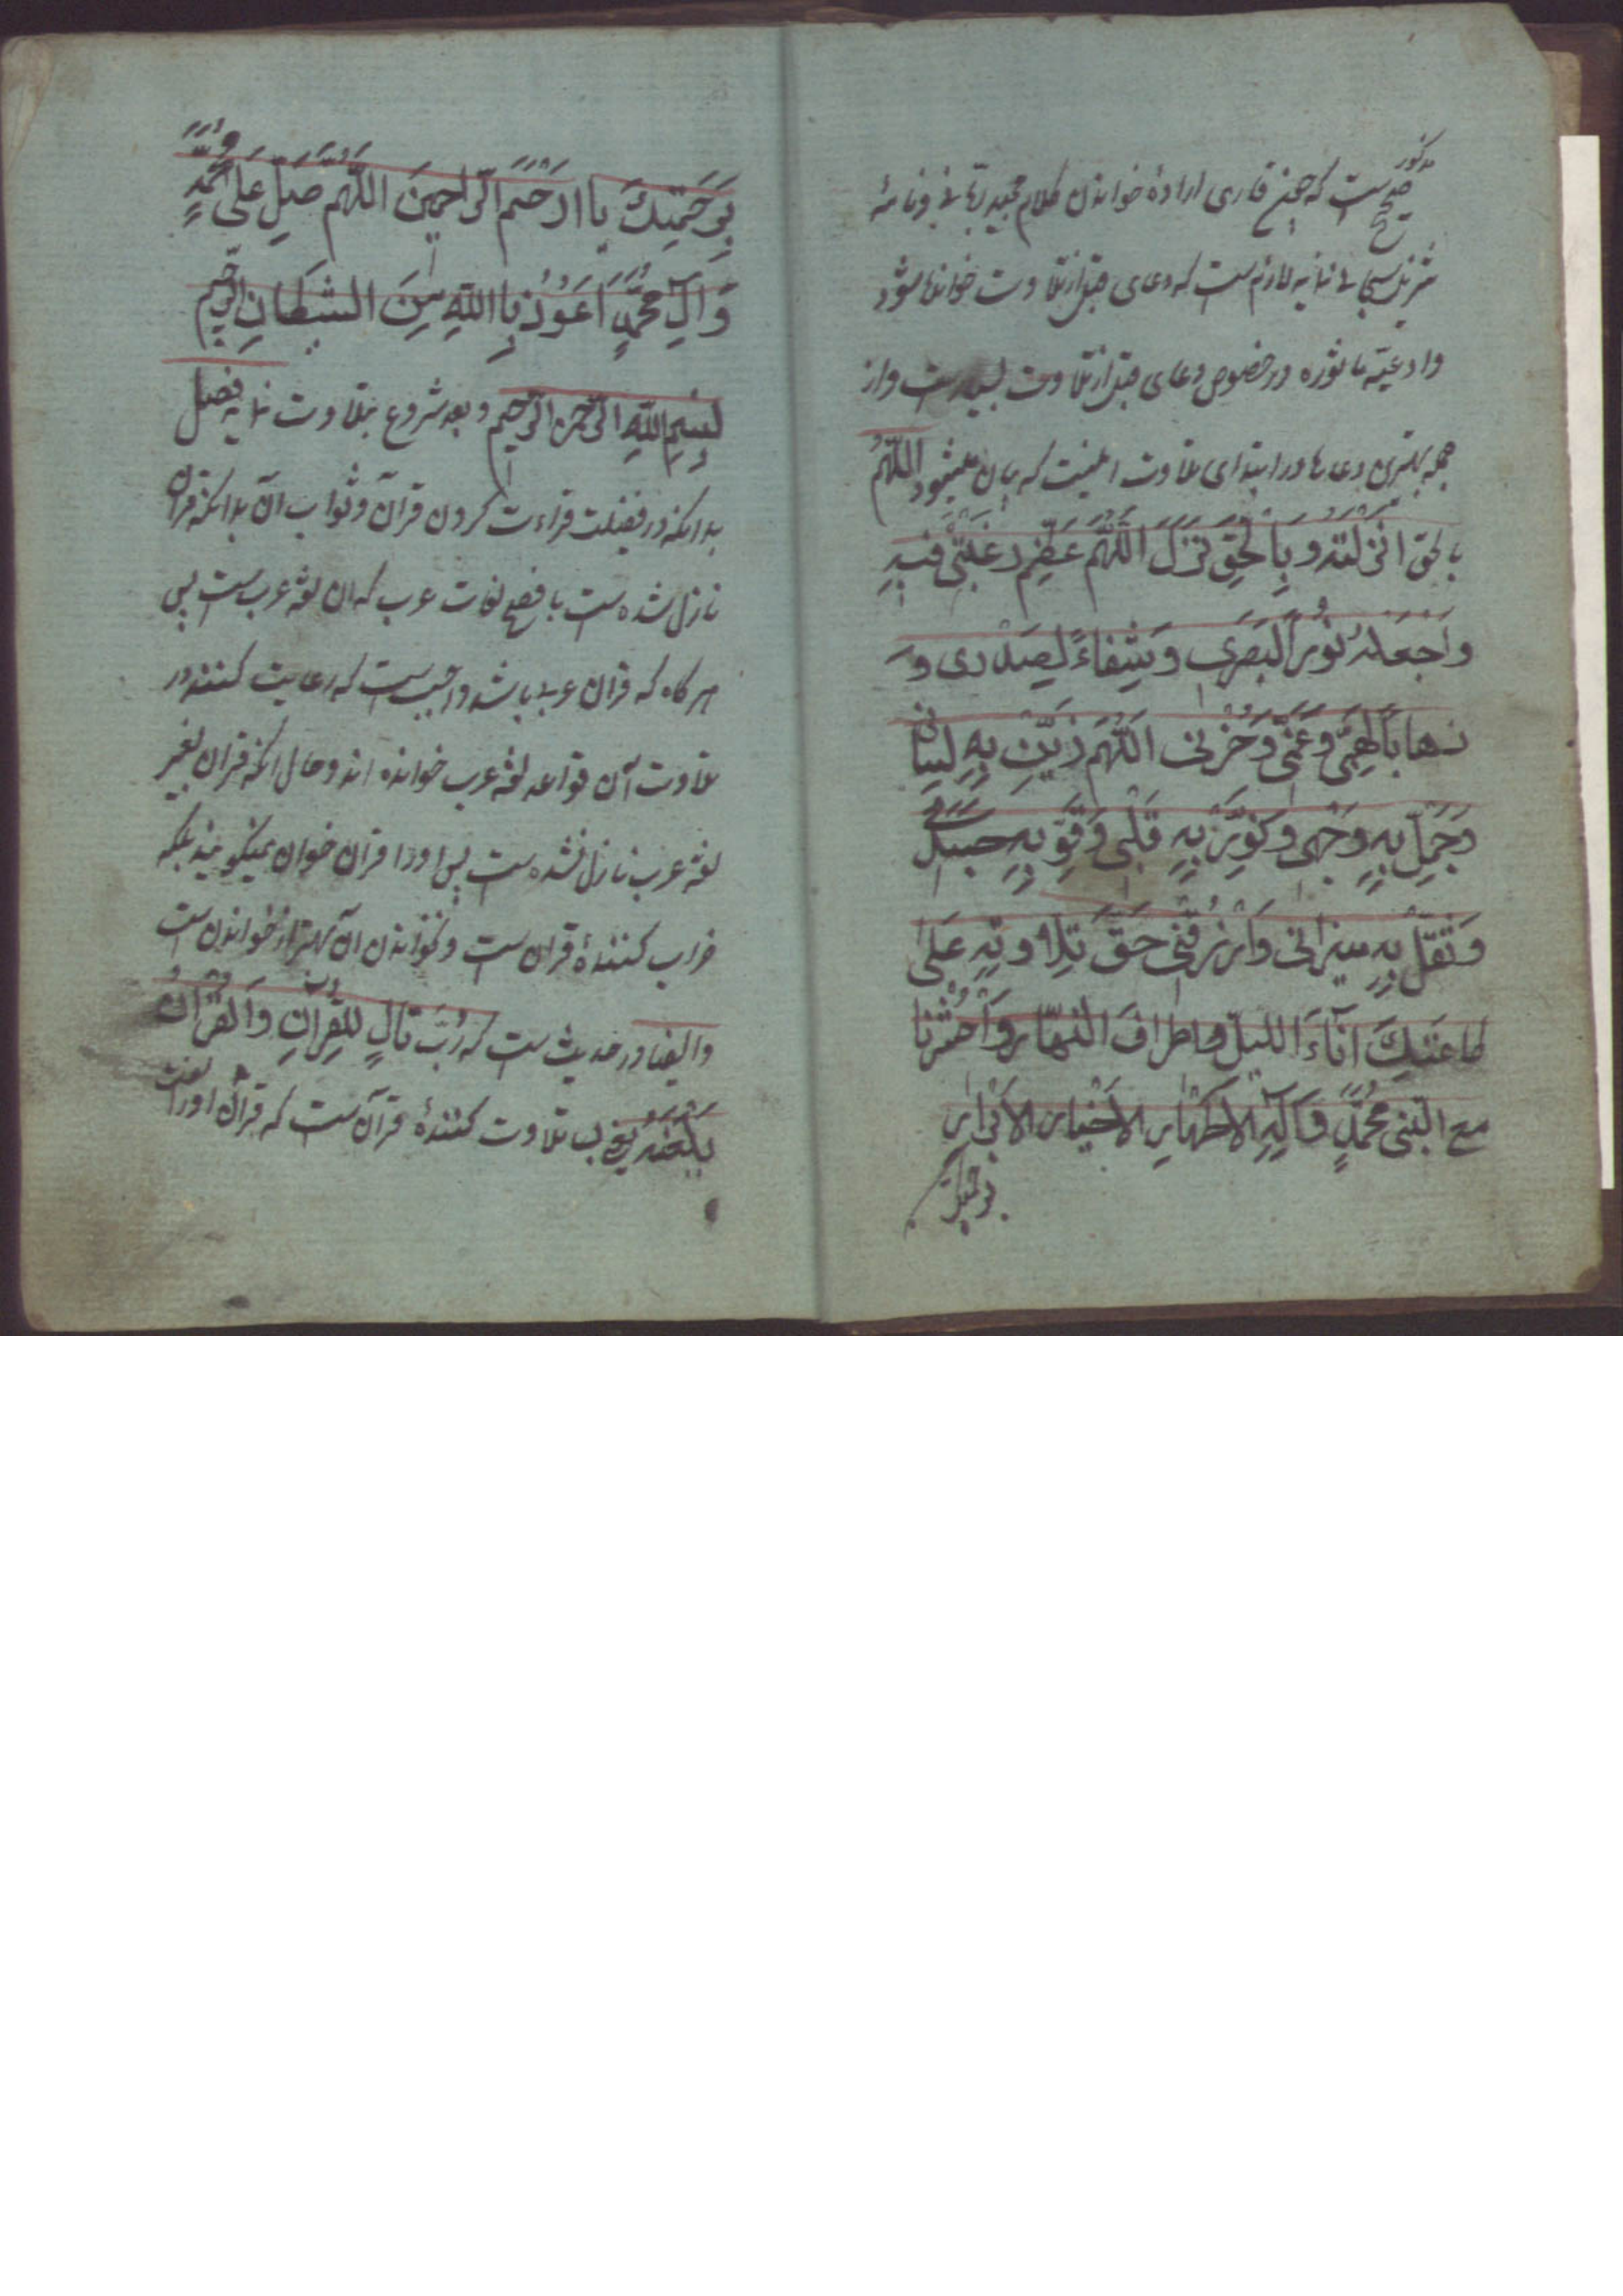 مذکور
صحیح است که چون قاری ارادهٔ خواندن کلام مجید ربانی و نامهٔ
تنزیل سبحانی نماید لازم است که دعای قبل از تلاوت خوانده شود
وادعیّه ماثوره در خصوص دعای قبل از تلاوت بسیار است واز
جمله بهترین دعاها در ابتدای تلاوت اینست که بیان میشود اللّهُمَّ
بالحق انزلته وبالحق نزل اللّهُمَّ عَظِّم رغبتی فیه
واجعله نوراً لبصری وشفاءً لصدری وَ
ذهاباً لهمّی وغمّی وحُزنی اللّهُمَّ زَیّن بِهِ لسانی
وجمّل به وجهی ونوّر به قلبی وقوّ به جسدی
وثقّل به میزانی وارزقنی حقّ تلاوته علی
طاعتک آناءَ اللیل واطراف النهار واحشرنا
مع النّبی محمّدٍ وَآلِهِ الاطهار الاخیار الابرار
برحمتک
بِرَحمَتِکَ یا ارحَمَ الرّاحِمینَ اللّهُمَّ صَلِّ عَلی مُحَمَّدٍ
وَآلِ مُحَمَّدٍ اَعوُذُ بِااللّهِ مِنَ الشَیطانِ الرَّجیم
بِسمِ اللّهِ الرّحمن الرّحیم وبعد شروع بتلاوت نماید فصل
بدانکه در فضیلت قراءت کردن قرآن وثواب آن بدانکه قران
نازل شده است بافصح لغات عرب که آن لغة عرب است پس
هرگاه که قران عربی باشد واجب است که رعایت کنند در
تلاوت آن قواعد لغة عرب خوانده اند وحال انکه قران بغیر
لغة عرب نازل نشده است پس اورا قران خوان نمیگویند بلکه
خراب کنندهٔ قران است ونخواندن آن بهتر از خواندن است
وایضا در حدیث است که رُبَّ تالٍ للقرآنِ وَالقرآنُ
یَلعَنُهُ یعنی بسا تلاوت کنندهٔ قرآن است که قرآن اورا لعنت